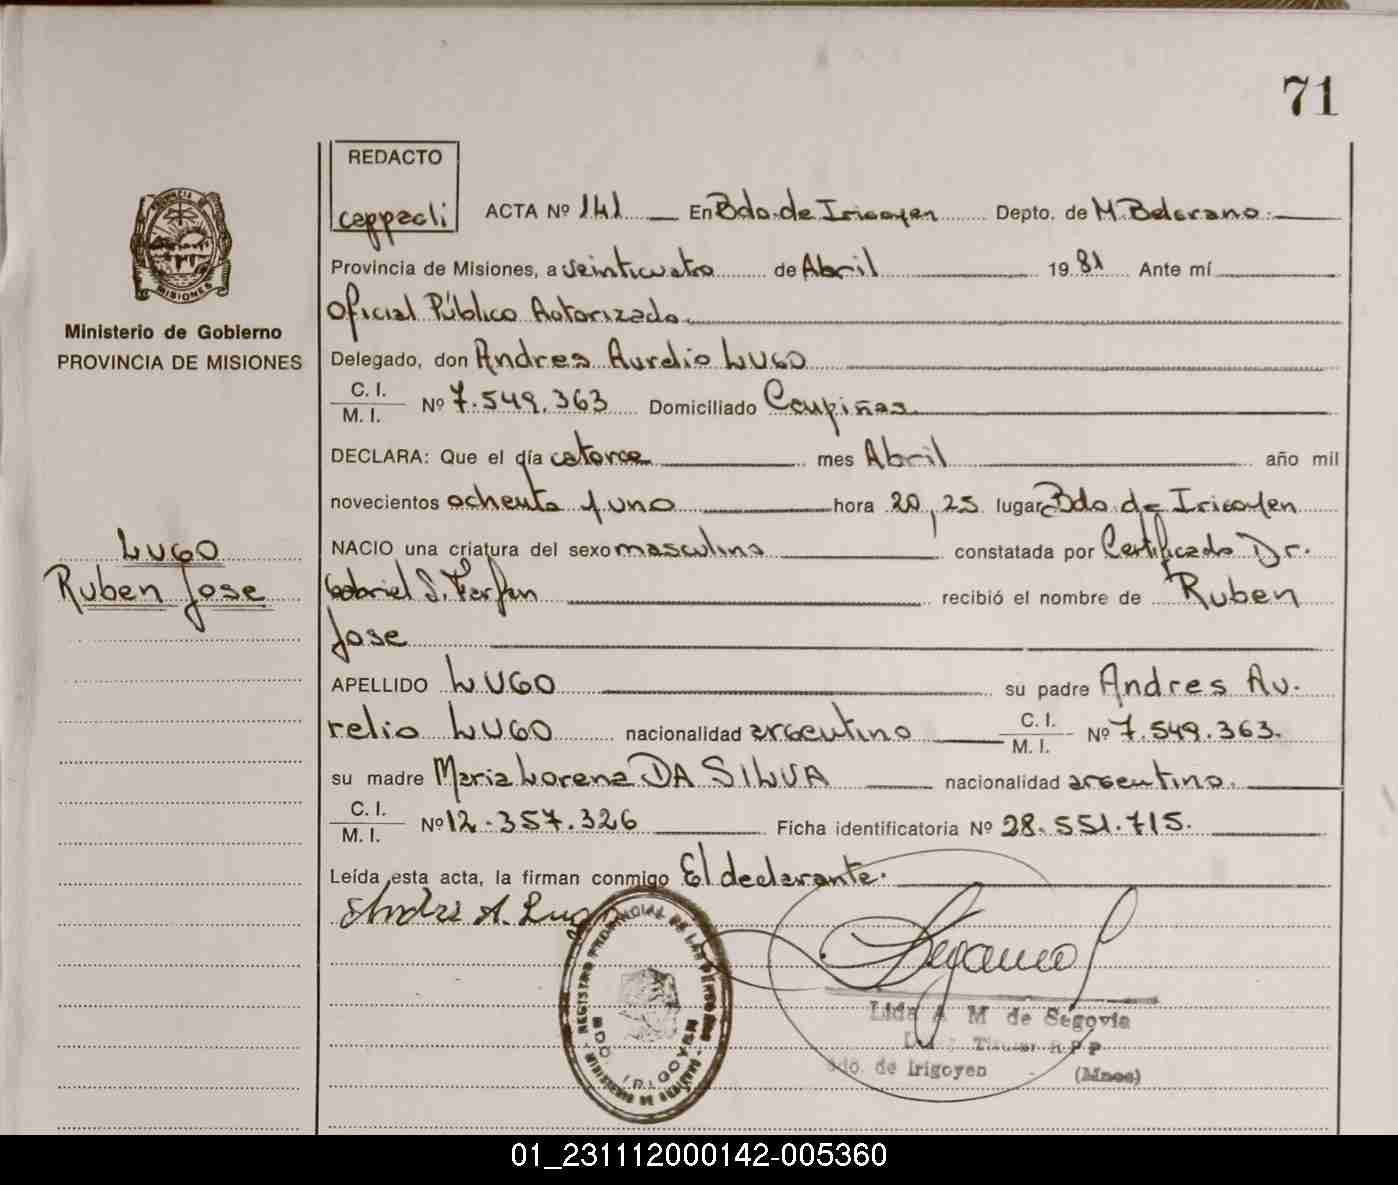 71
REDACTO
ceppacli
ACTA Nº 141 En Bdo. de Irigoyen Depto. de M. Belgrano.
Provincia de Misiones, a veinticuatro de Abril 1981 Ante mí
Oficial Público Autorizado.
MISIONES
Ministerio de Gobierno
PROVINCIA DE MISIONES
Delegado, don Andres Aurelio LUGO
C. I.
M. I.
Nº 7.549.363 Domiciliado Caupiñas.
DECLARA: Que el día catorce mes Abril año mil
novecientos ochenta y uno hora 20,25 lugar Bdo. de Irigoyen
LUGO
Ruben Jose
NACIO una criatura del sexo masculino constatada por Certificado Dr.
Gabriel S. Farfan recibió el nombre de Ruben
Jose
APELLIDO LUGO su padre Andres Au-
relio LUGO nacionalidad argentino C. I.
M. I. Nº 7.549.363.
su madre Maria Lorena DA SILVA nacionalidad argentino.
C. I.
M. I.
Nº 12.357.326 Ficha identificatoria Nº 28.551.715.
Leída esta acta, la firman conmigo El declarante.
Andrés A. Lugo
REGISTRO PROVINCIAL DE LAS PERSONAS
BDO. IRIGOYEN
Lida A M de Segovia
Titular R P P
Bdo. de Irigoyen (Mnes)
01_231112000142-005360